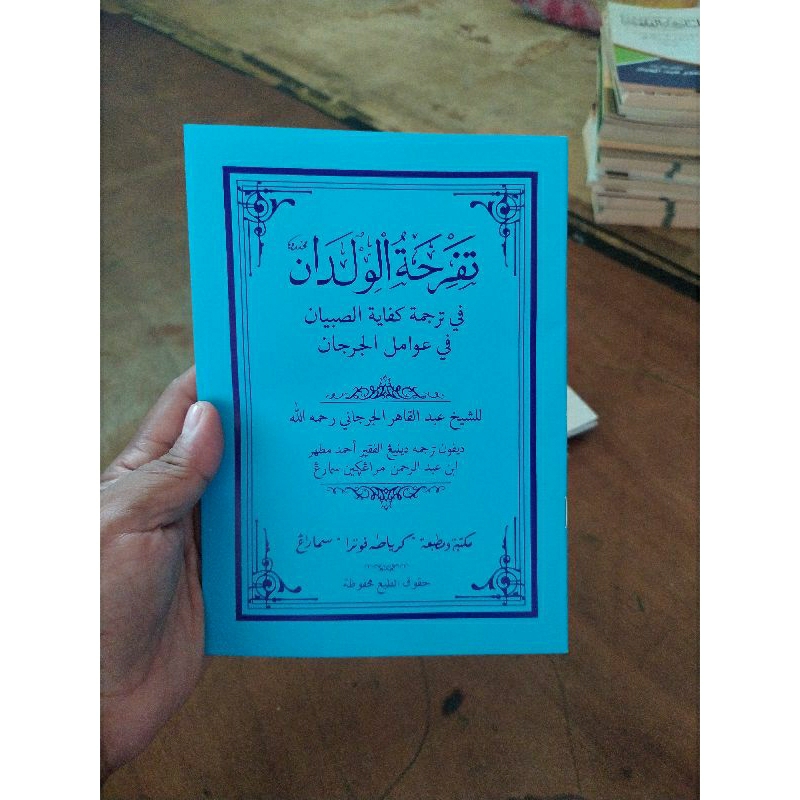 تَفْرِحَةُ الْوِلْدَانِ
في ترجمة كفاية الصبيان
في عوامل الجرجان
للشيخ عبد القاهر الجرجاني رحمه الله
ديفون ترجمه دينيڠ الفقير أحمد مطهر
ابن عبد الرحمن مراڠڮين سماراڠ
مكتبة ومطبعة "كرياطه فوترا" سماراڠ
حقوق الطبع محفوظة